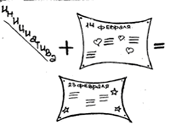 инициатива
+
14 февраля
=
23 февраля